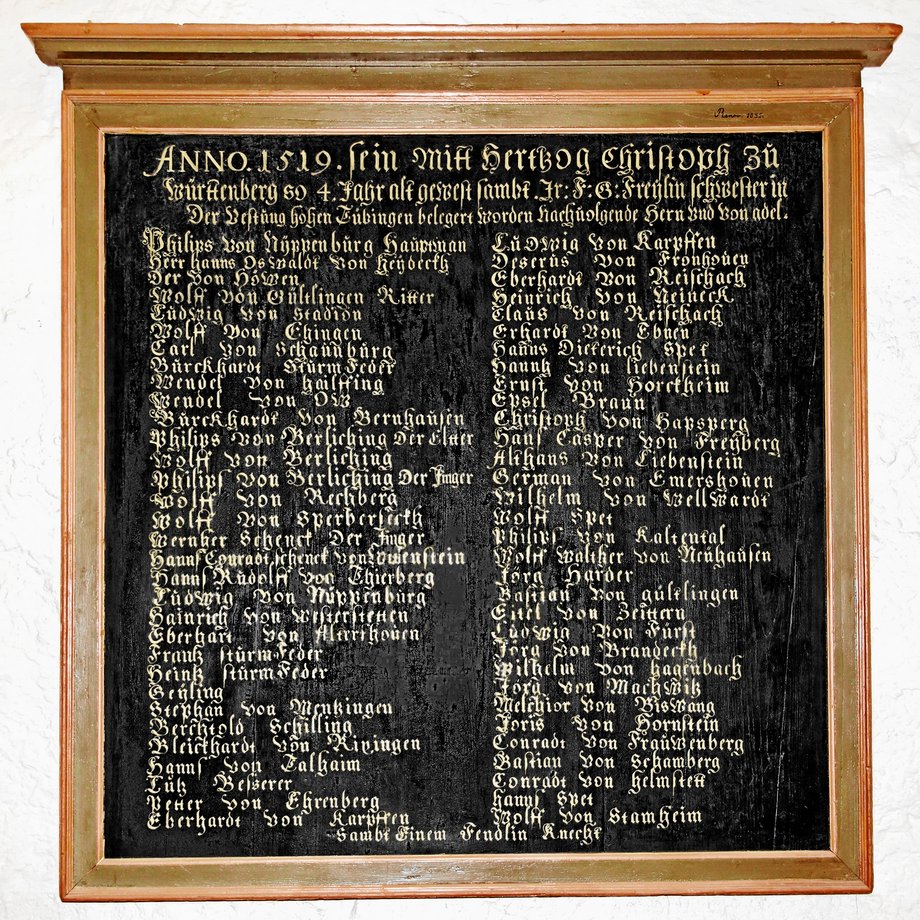 Renov. 1
ANNO. 1519. sein Mitt Hertzog Christoph zu
Württenberg so 4. Jahr alt gewest sambt Jr: F: G: Freylin schwester in
Der Vestung hohen Tübingen belegert worden Nachvolgende Hern vnd von adel.
Philips von Nüppenburg Hauptman
Herr Hanns Oswaldt von Heydeckh
Der von Höwen
Wolff von Gültlingen Ritter
Ludwig von Stadion
Wolff von Ehingen
Carl von Schaunburg
Burckhardt SturmFeder
Wendel von Hailfking
Wendel von OW
Burckhardt von Bernhausen
Philips von Berliching Der Eltter
Wolff von Berliching
Philips von Berliching Der Jünger
Wolff von Rechberg
Wolff von Sperberseckh
Wernher Schenck Der Jünger
Hanns Conradt schenck von Winenstein
Hanns Rudolff von Thierberg
Ludwig von Nüppenburg
Hainrich von Westerstetten
Eberhart von
Frantz sturmFeder
Heintz sturmFeder
Geyling
Stephan von Mentzingen
Berchtold Schilling
Bleickhardt von Rixingen
Hanns von Talhaim
Lutz Besserer
Petter von Ehrenberg
Eberhardt von Karpffen
Ludwig von Karpffen
Deserus von Fronhouen
Eberhardt von Reischach
Heinrich von Neineck
Claus von Reischach
Erhardt von Ebnen
Hanns Dietterich Spet
Hanns von liebenstein
Ernst von Horckheim
Epsel Braun
Christoph von Hapsperg
Hans Casper von Freyberg
Althans von Liebenstein
German von Emershouen
Wilhelm von WellWardt
Wolff Spet
Philips von Kaltental
Wolff Walther von Neuhausen
Jorg Harder
Bastian von gültlingen
Eitel von Zeittern
Ludwig von Fürst
Jorg von Brandeckh
Wilhelm von Hagenbach
Jorg von MachWitz
Melchior von BisWang
Joris von Hornstein
Conradt von FrauWenberg
Bastian von Schamberg
Conradt von Helmstett
Hanns Spet
Wolff von Stamheim
Sambt Einem Fendlin Knecht